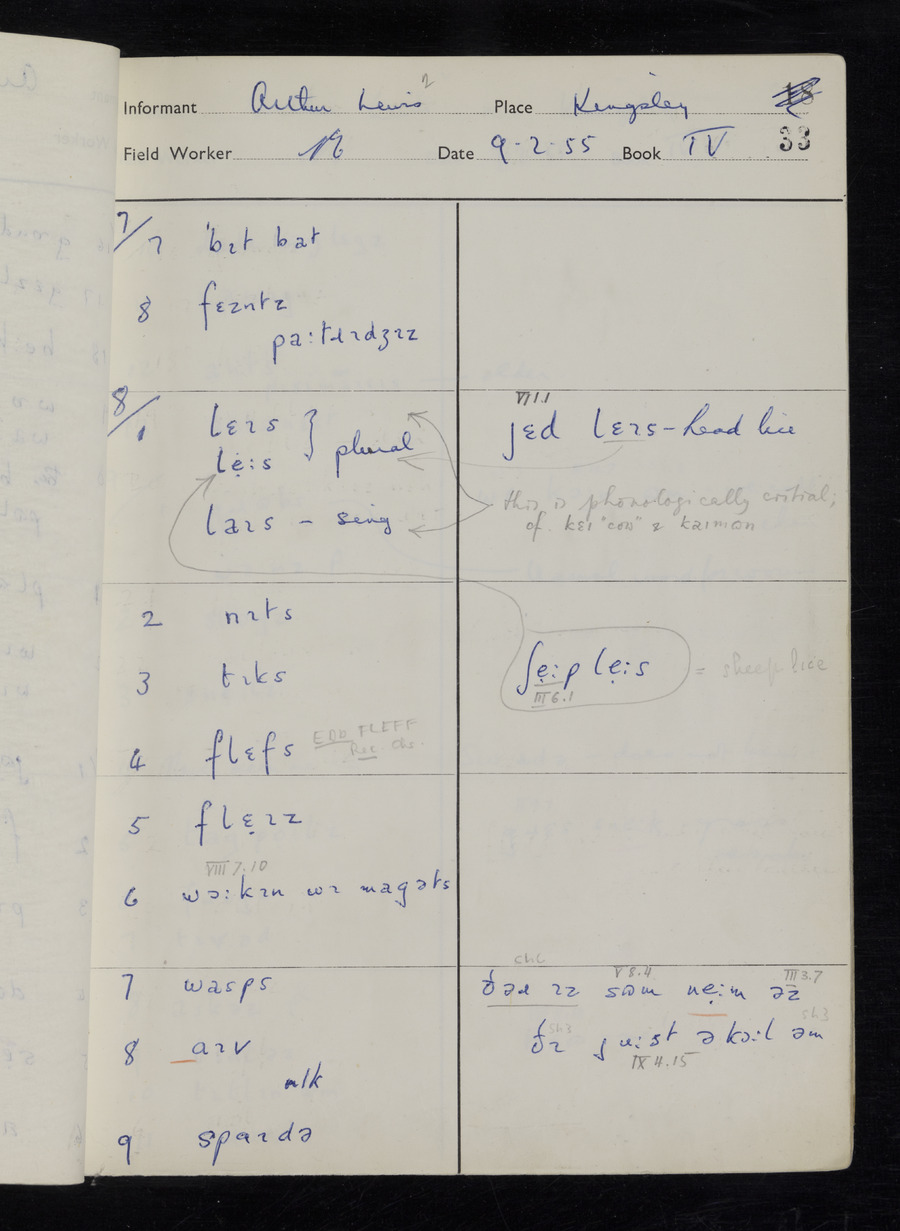 Informant Arthur Lewis 2 Place Kingsley
Field Worker Date 9-2-55 Book IV 33
7/7 'bɪt bat
8 fɛɪntɪ
pa:tɹɪdʒɪz
8/1 lɛɪs } plural
lẹ:s
laɪs - sing
VIII.1
jɛd lɛɪs - head lice
this is phonologically critical;
cf. kɛi "cow" & kaimon
2 nɪts
3 tɪks
ʃẹ:p lẹ:s = sheep lice
III 6.1
4 flɛfs EDD FLEFF
Rec. Chs.
5 flẹɪz
VIII 7.10
6 wə:kɪn wɪ magəts
7 wasps
ch6 V 8.4 III 3.7
ðəɹ ɪz sɒm nẹ:m əz
8 aɪv
nlk
sh3 sh3
ðɪ ju:st əkɔ:l əm
IX 4.15
9 spaɪdə